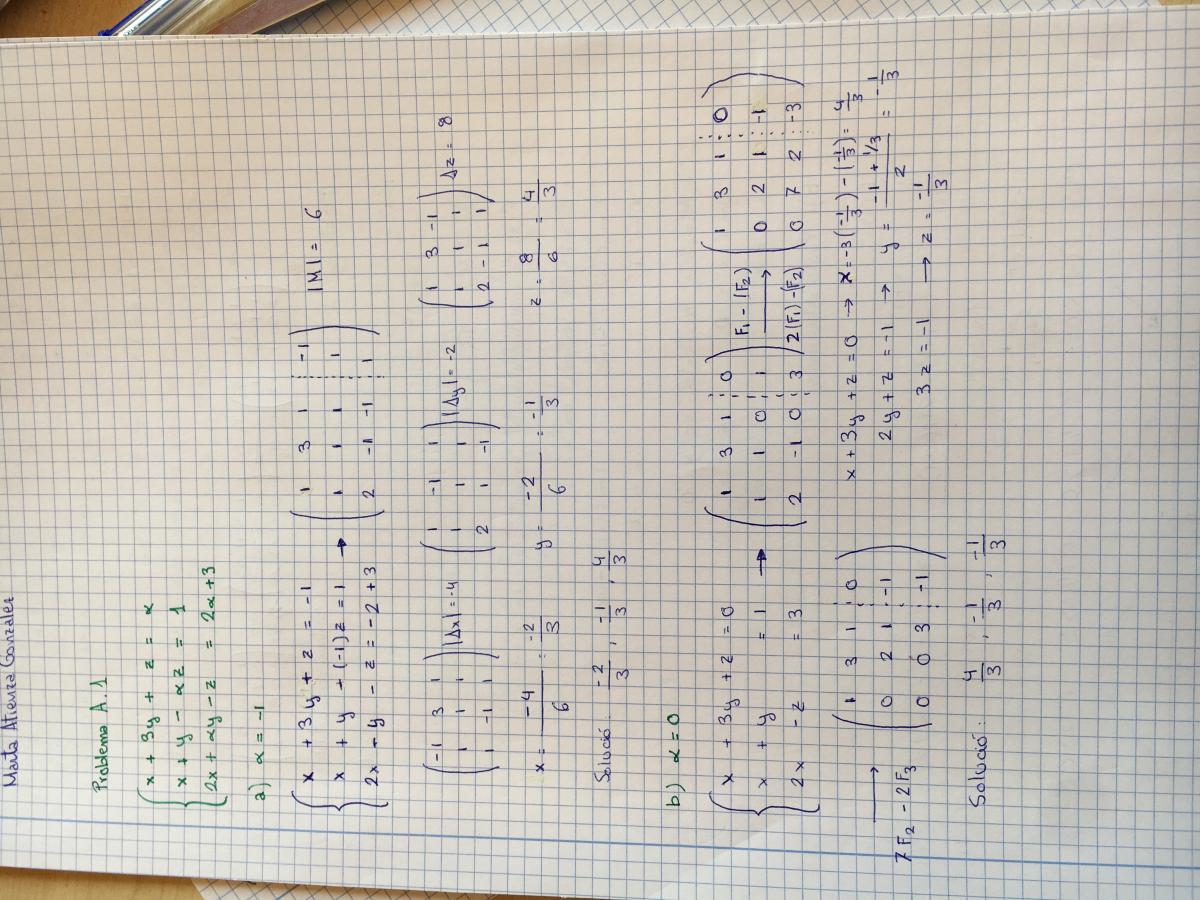 Marta Atienza Gonzalez
Problema A.1
x + 3y + z = α
x + y - αz = 1
2x + αy - z = 2α + 3
a) α = -1
x + 3y + z = -1
x + y + (-1)z = 1
2x + y - z = -2 + 3
→
1 3 1 -1
1 1 1 1
2 -1 -1 1
|M| = 6
-1 3 1
1 1 1
1 -1 1
|Δx| = -4
1 -1 1
1 1 1
2 1 -1
|Δy| = -2
1 3 -1
1 1 1
2 -1 1
Δz = 8
x = -4/6 = -2/3
y = -2/6 = -1/3
z = 8/6 = 4/3
Solució: -2/3, -1/3, 4/3
b) α = 0
x + 3y + z = 0
x + y = 1
2x - z = 3
→
1 3 1 0
1 1 0 1
2 -1 0 3
F1 - (F2)
→
2(F1) - (F2)
1 3 1 0
0 2 1 -1
0 7 2 -3
→
7F2 - 2F3
1 3 1 0
0 2 1 -1
0 0 3 -1
x + 3y + z = 0 → x = -3(-1/3) - (-1/3) = 4/3
2y + z = -1 → y = (-1 + 1/3)/2 = -1/3
3z = -1 → z = -1/3
Solució: 4/3, -1/3, -1/3